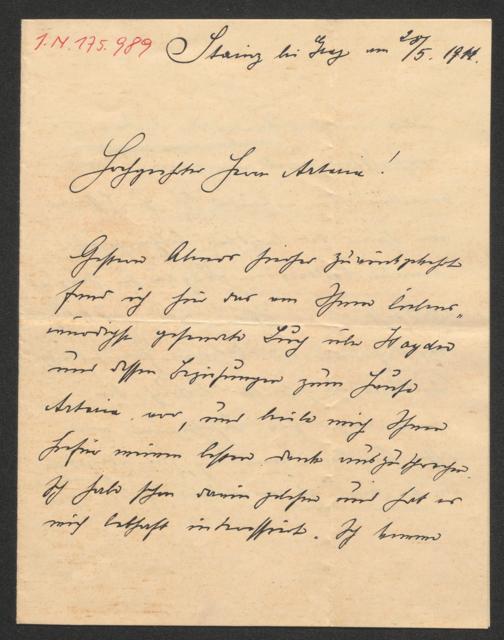 I.N. 175.989
Stainz bei Graz am 28/5. 1911.
Hochgeehrter Herr Artaria!
Gestern Abends hierher zurückgekehrt
fand ich hier das von Ihnen liebens„
würdigst gesandte Buch über Haydn
und dessen Beziehungen zum Hause
Artaria vor, und beeile mich Ihnen
hiefür meinen besten Dank auszusprechen.
Ich habe schon darin gelesen und hat es
mich lebhaft interessirt. Ich komme